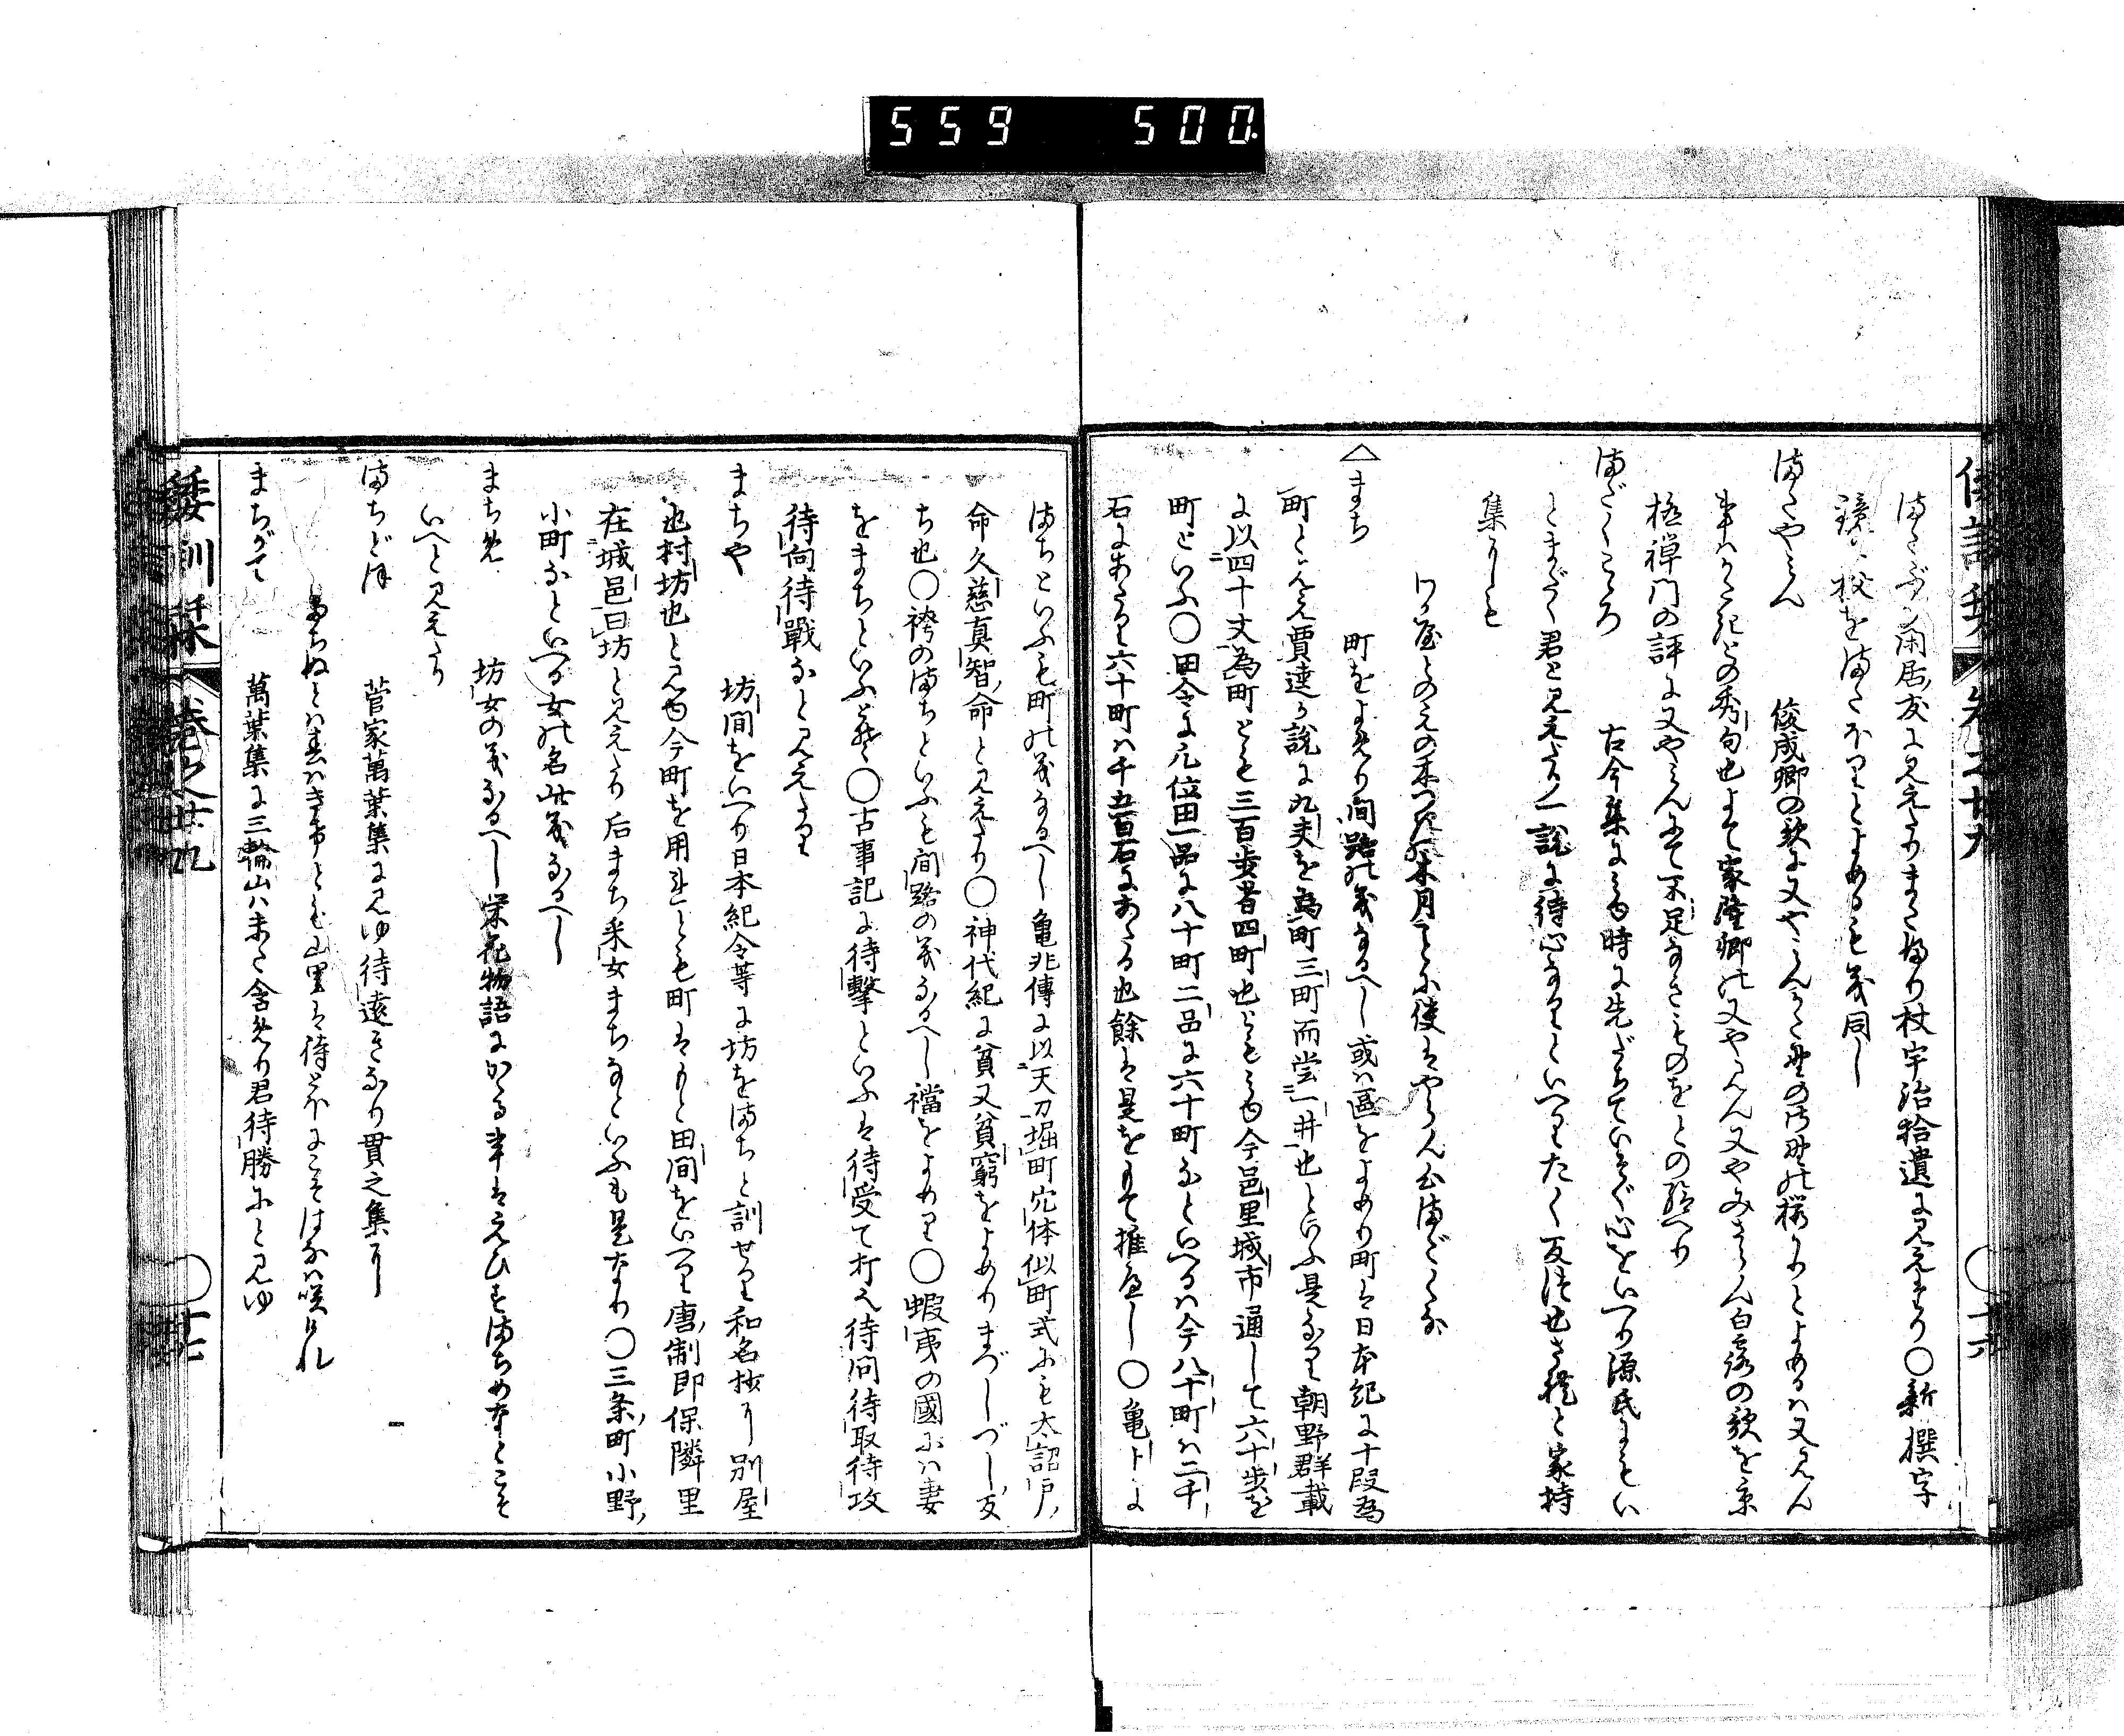 559 500.
またぶり 閑居友に見えたりまた振り杖宇治拾遺に見えたり〇新撰字
鏡に杈をまたふりとよめるも義同し
またやみん 俊成卿の歌に又やみんかた野のみ野の桜かりとよめるハ又見ん
事ハかたきとの秀句也よて家隆卿の又やみん又やみさらん白露の歌を京
極禅門の評に又やみんにて不足なきものをとの給へり
まだくころ 古今集にみゆ時に先だちていそぐ心をいへり源氏にもい
とまだく君と見えたり一説に待心なりといへりたく反つ也され と家持
集にも
わか屋とのえの木つき
△まち 町をよめり間路の義なるへし或ハ區をよめり町は日本紀に十段為
町と見え賈逵か説に九夫を為町三町而當一井也といふ是なり朝野群載
に以四十丈為町とも三百歩者四町也ともみゆ今邑里城市通して六十歩を
町といふ〇田令に凡位田一品に八十町二品に六十町なといへるハ今八十町ハ二千
石にあたり六十町ハ千五百石にあたる也餘は是をもて推へし〇亀卜に
まちといふも町の義なるへし亀兆傳に以天刀堀町穴体似町式にも太詔戸
命久慈真智命と見えたり〇神代紀に貧又貧窮をよめりまづしづし反
ち也〇袴のまちといふも間路の義なるへし襠をよめり〇蝦夷の國にハ妻
をまちといふとぞ〇古事記に待撃といふは待受て打也待問待取待攻
待向待戰なと見えたり
まちや 坊間をいへり日本紀令等に坊をまちと訓せり和名抄に別屋
也村坊也と見ゆ今町を用れとも町はもと田間をいへり唐制即保隣里
在城邑曰坊と見えたり后まち采女まちなといふも是なり〇三条町小野
小町なといへる女の名此義なるへし
まちめ 坊女の義なるへし栄花物語にかゝる事はえひすまちめなとこそ
いへと見えたり
まちどほ 菅家萬葉集に見ゆ待遠きなり貫之集に
まちぬとは春ハき
まちがて 萬葉集に三輪山ハ未た含めり君待勝にと見ゆ
倭訓栞 巻之廿九 〇十七